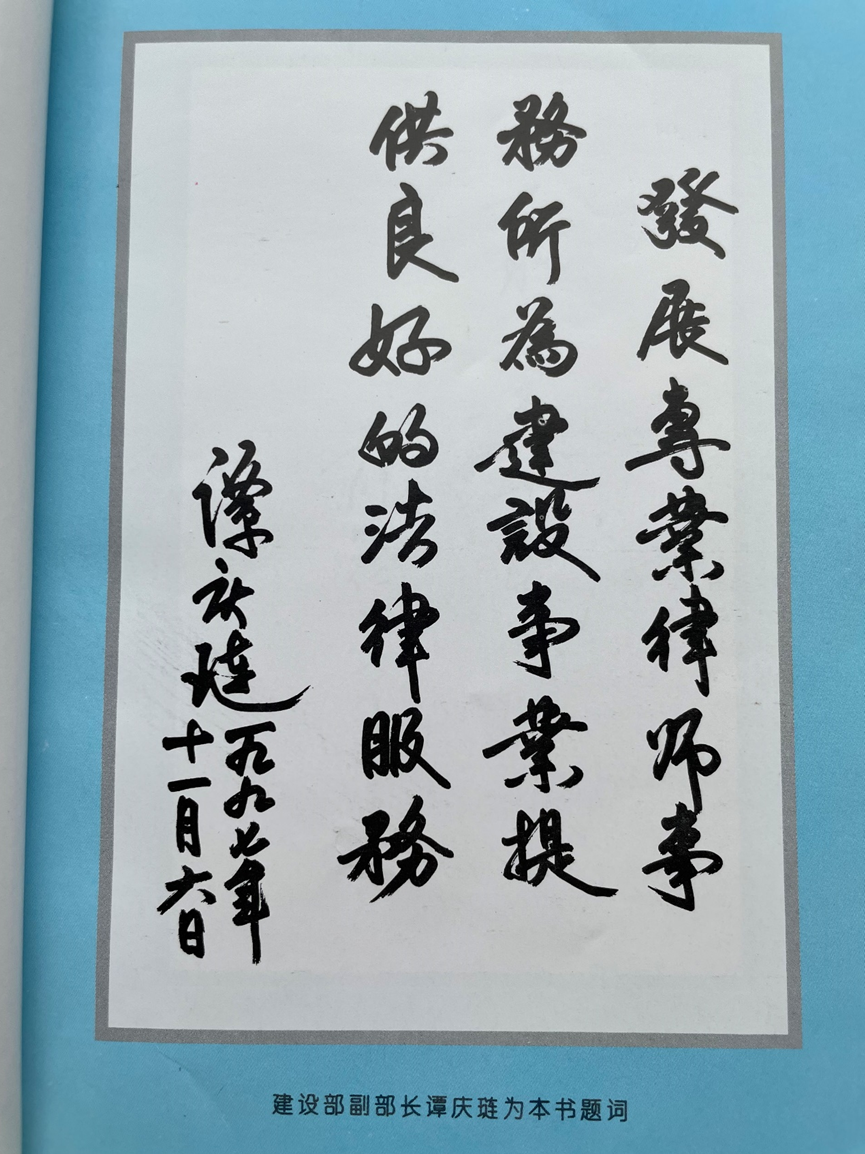 發展專業律师事
務所為建設事業提
供良好的法律服務
谭庆琏
一九九七年
十一月六日
建设部副部长谭庆琏为本书题词